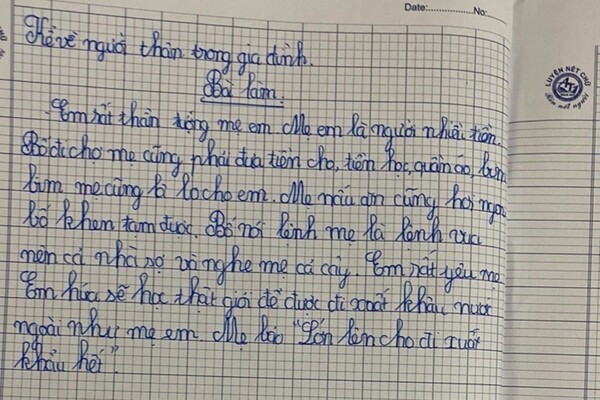 Date: No:
Kể về người thân trong gia đình.
Bài làm.
Em rất thần tượng mẹ em. Mẹ em là người nhiều tiền.
Bố đi chợ mẹ cũng phải đưa tiền cho, tiền học, quần áo, bim
bim mẹ cũng lo cho em. Mẹ nấu ăn cũng hơi ngon
bố khen tạm được. Bố nói lệnh mẹ là lệnh vua
nên cả nhà sợ và nghe mẹ cả cây. Em rất yêu mẹ
Em hứa sẽ học thật giỏi để được đi xuất khẩu nước
ngoài như mẹ em. Mẹ bảo "Lớn lên cho đi xuất
khẩu hết".
LUYỆN NÉT CHỮ